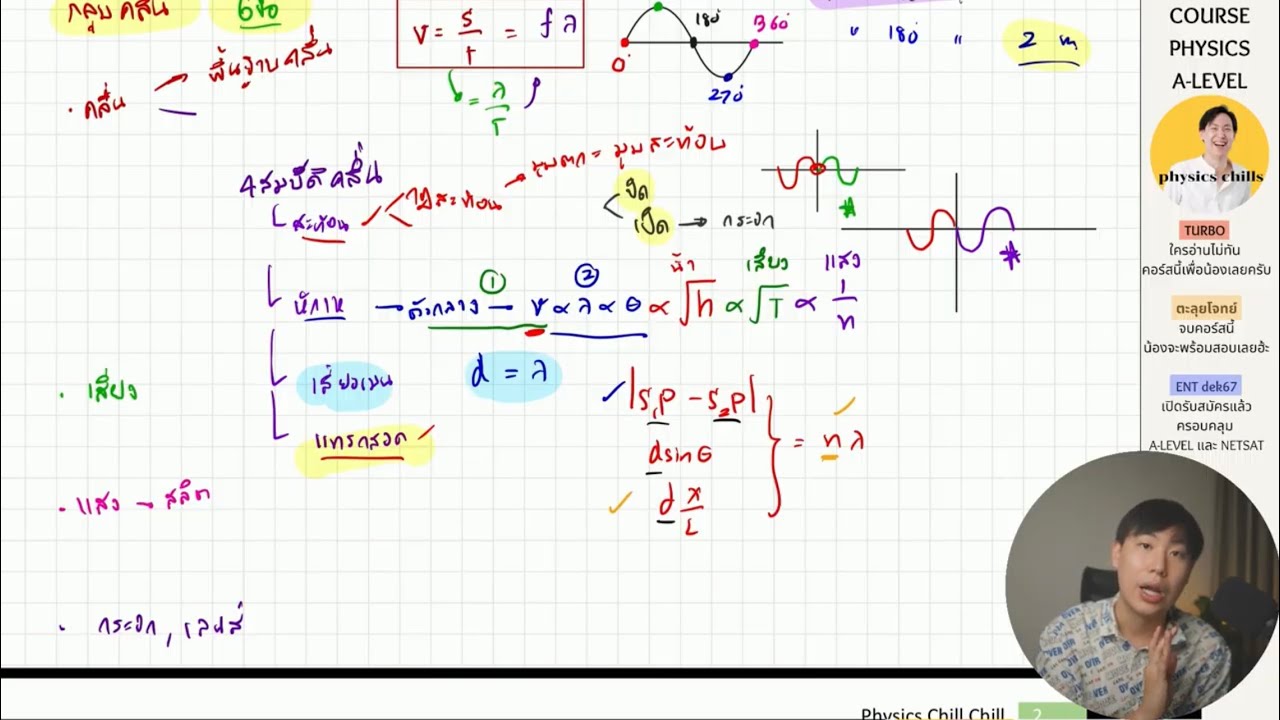 กลุ่มคลื่น 6 ข้อ
v = s/t = fλ
= λ/T
0° 180° 270° 360°
" 180° " 2 m
• คลื่น → พื้นฐานคลื่น
4 สมบัติคลื่น
สะท้อน ✓ กฎสะท้อน → มุมตก = มุมสะท้อน
ปิด
เปิด → กระจก
① ② น้ำ เสียง แสง
หักเห → ตัวกลาง → v ∝ λ ∝ θ ∝ √h ∝ √T ∝ 1/n
เลี้ยวเบน d = λ
แทรกสอด ✓
✓ |S₁P - S₂P|
d sin θ
✓ d x/L
} = nλ ✓
• เสียง
• แสง → สลิต
• กระจก , เลนส์
COURSE
PHYSICS
A-LEVEL
physics chills
TURBO
ใครอ่านไม่ทัน
คอร์สนี้เพื่อน้องเลยครับ
ตะลุยโจทย์
จบคอร์สนี้
น้องจะพร้อมสอบเลยฮะ
ENT dek67
เปิดรับสมัครแล้ว
ครอบคลุม
A-LEVEL และ NETSAT
Physics Chill Chill 2